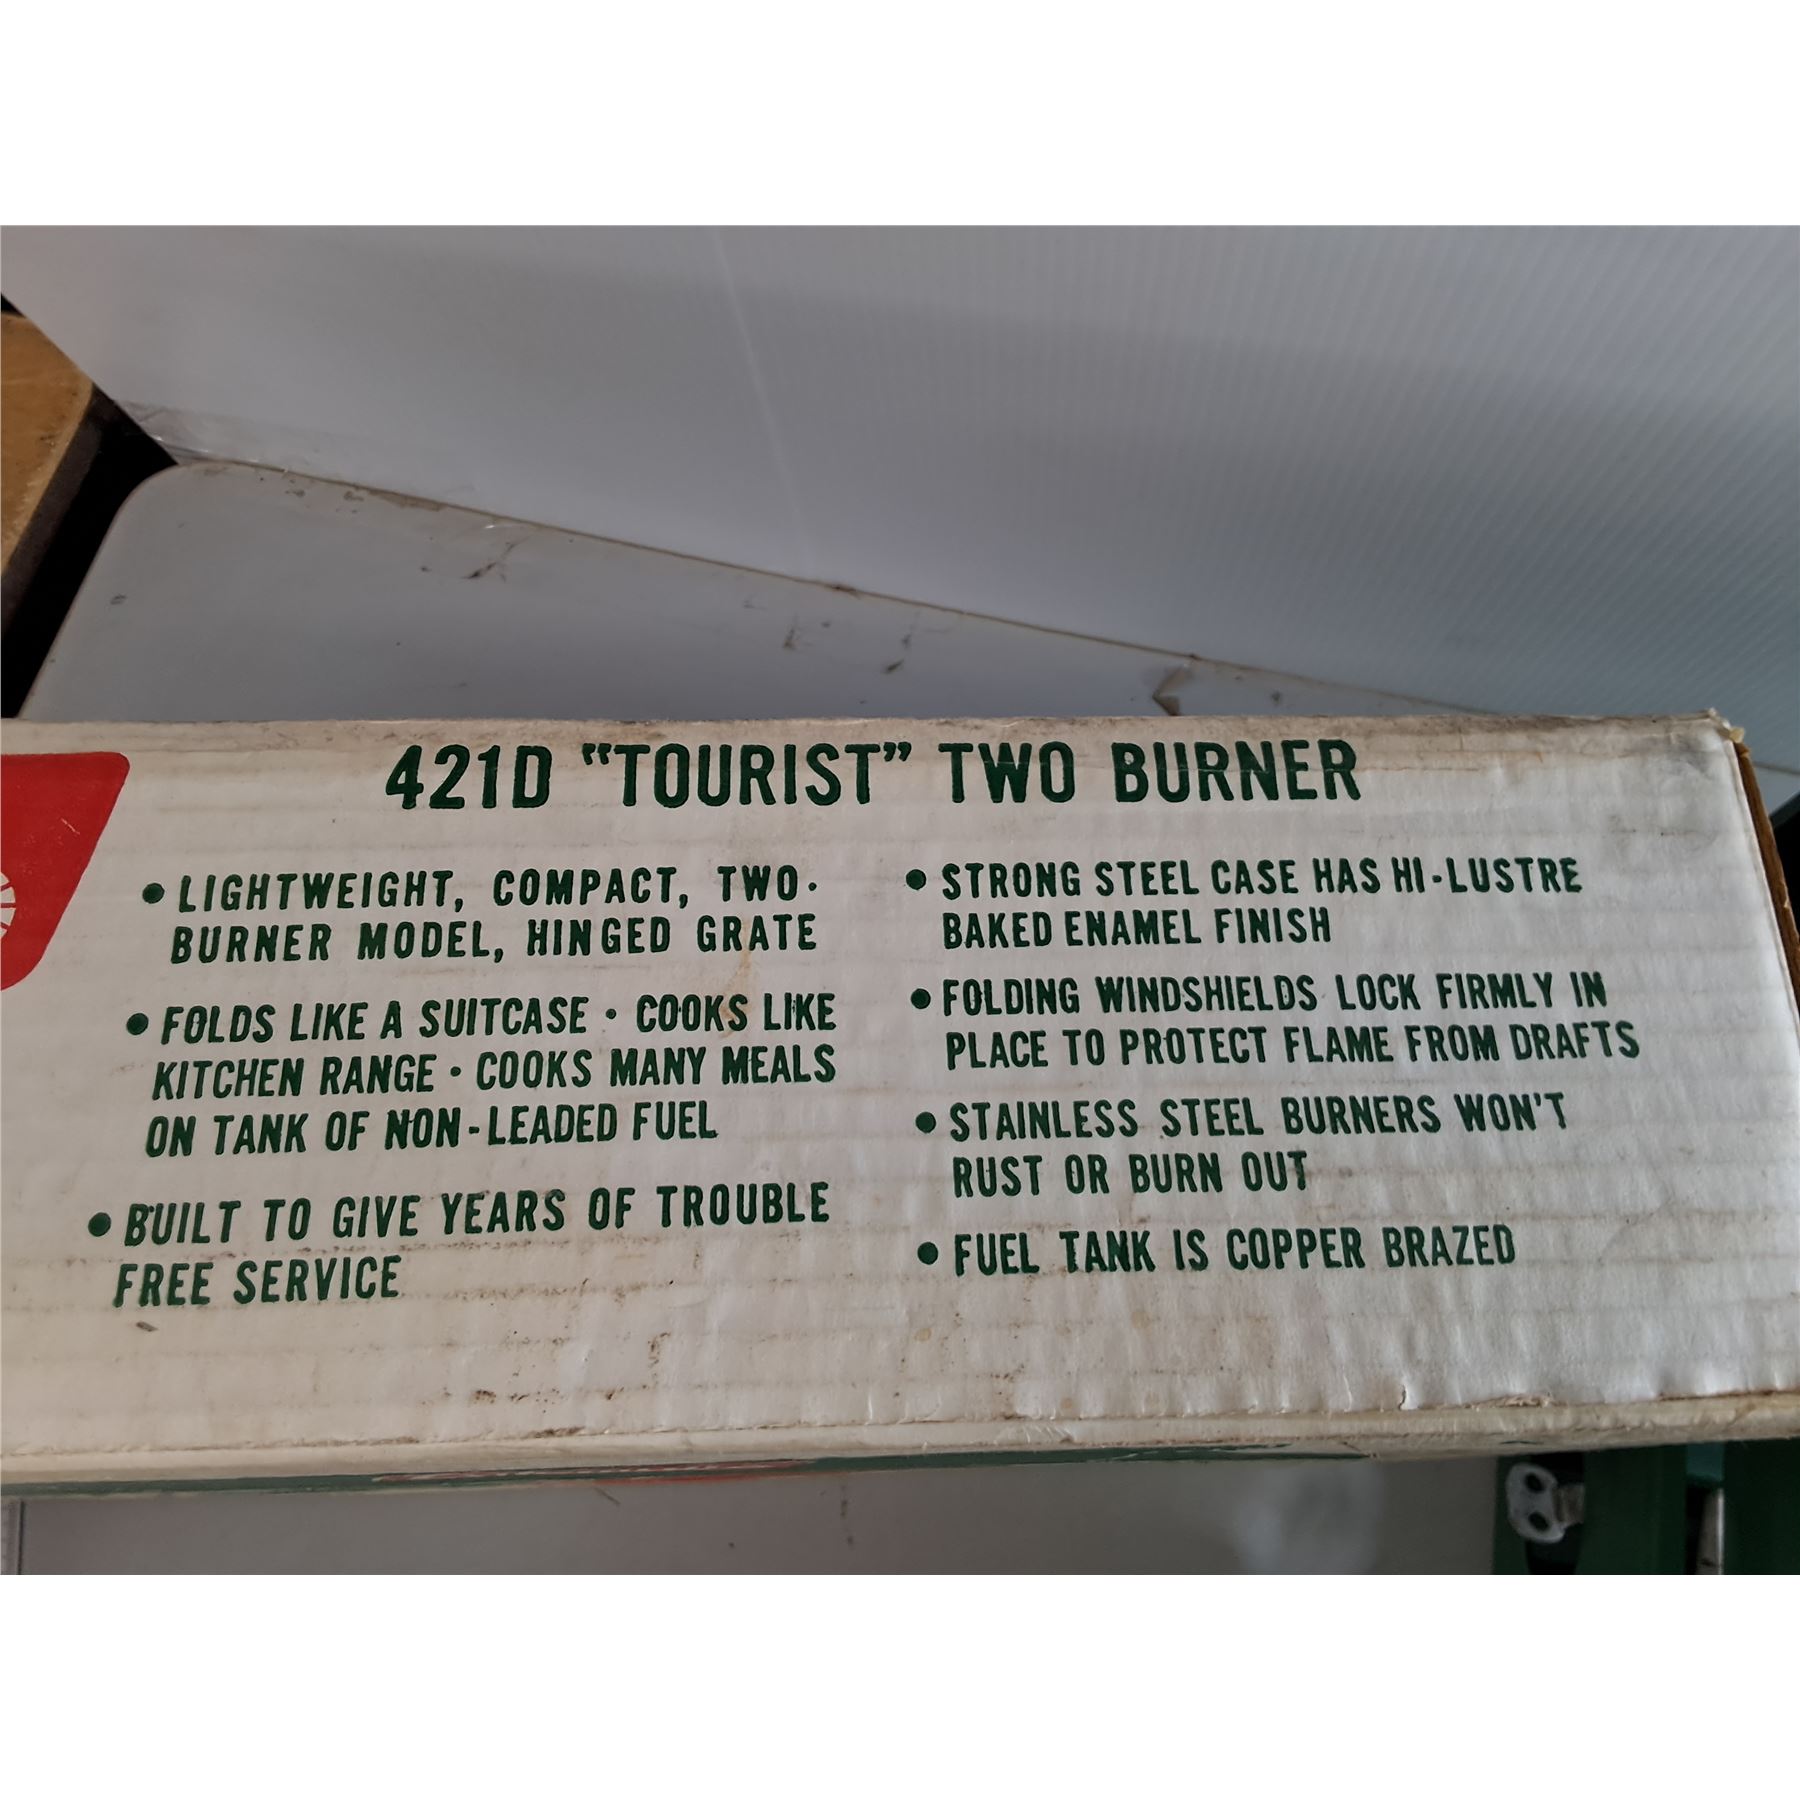 421D “TOURIST” TWO BURNER
• LIGHTWEIGHT, COMPACT, TWO-
BURNER MODEL, HINGED GRATE
• FOLDS LIKE A SUITCASE • COOKS LIKE
KITCHEN RANGE • COOKS MANY MEALS
ON TANK OF NON-LEADED FUEL
• BUILT TO GIVE YEARS OF TROUBLE
FREE SERVICE
• STRONG STEEL CASE HAS HI-LUSTRE
BAKED ENAMEL FINISH
• FOLDING WINDSHIELDS LOCK FIRMLY IN
PLACE TO PROTECT FLAME FROM DRAFTS
• STAINLESS STEEL BURNERS WON'T
RUST OR BURN OUT
• FUEL TANK IS COPPER BRAZED